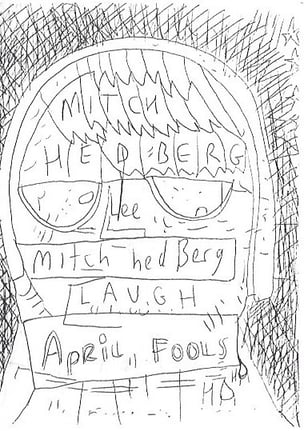 MITCH
HEDBERG
Lee
Mitch hedBerg
LAUGH
APRIL FOOLS
HD